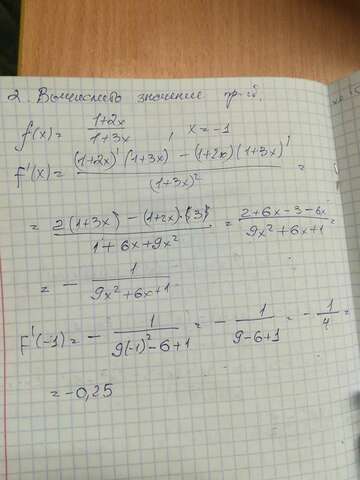 2. Вычислить значение пр-ой.
f(x) = (1+2x)/(1+3x), x = -1
F'(x) = ((1+2x)'(1+3x) - (1+2x)(1+3x)')/(1+3x)² =
= (2(1+3x) - (1+2x)·(3))/(1+6x+9x²) = (2+6x-3-6x)/(9x²+6x+1) =
= - 1/(9x²+6x+1)
F'(-1) = - 1/(9(-1)²-6+1) = - 1/(9-6+1) = - 1/4 =
= -0,25